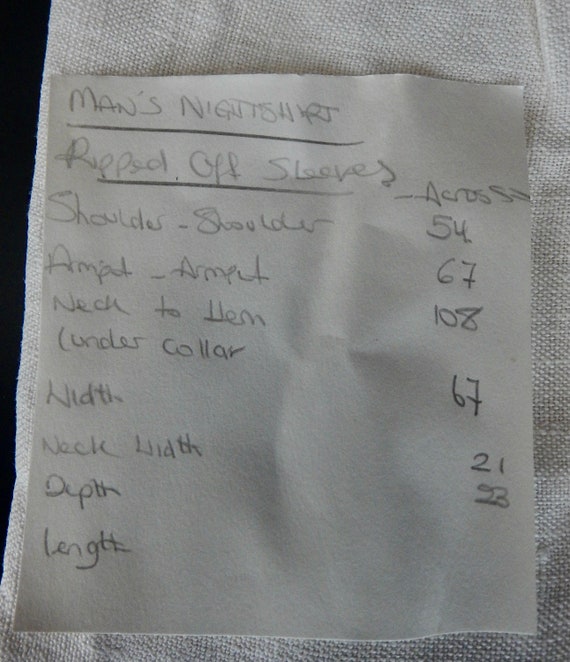 MAN'S NIGHTSHIRT
Ripped Off Sleeves
- Across
Shoulder - Shoulder 54
Armpit - Armpit 67
Neck to Hem 108
(under collar
Width 67
Neck Width 21
Depth 23
Length